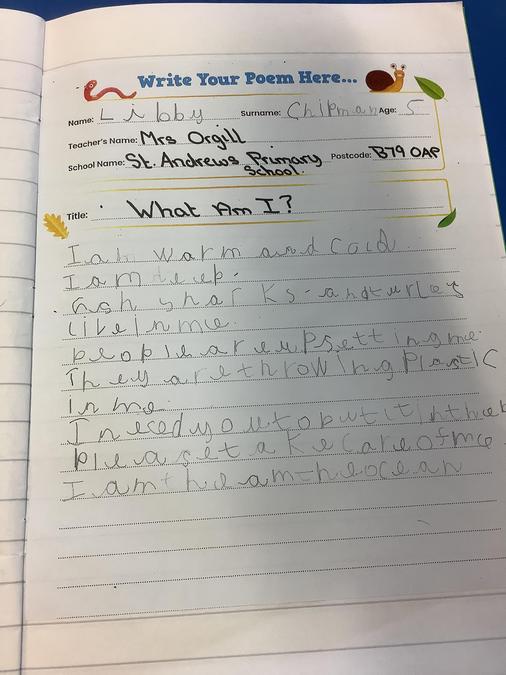 Write Your Poem Here...
Name: Libby Surname: Chipman Age: 5
Teacher's Name: Mrs Orgill
School Name: St. Andrews Primary School. Postcode: B79 0AP
Title: What Am I?
I am warm and cold
I am deep.
fish sharks and turles
live in me.
people are upsetting me.
They are throwing Plastic
in me.
I need you to put it in the b
please take care of me
I am the am the ocean